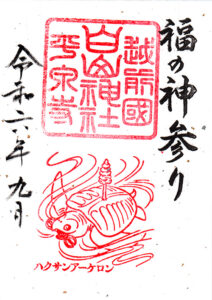 福の神参り
越前國
白山神社
平泉寺
令和六年九月
ハクサンアーケロン